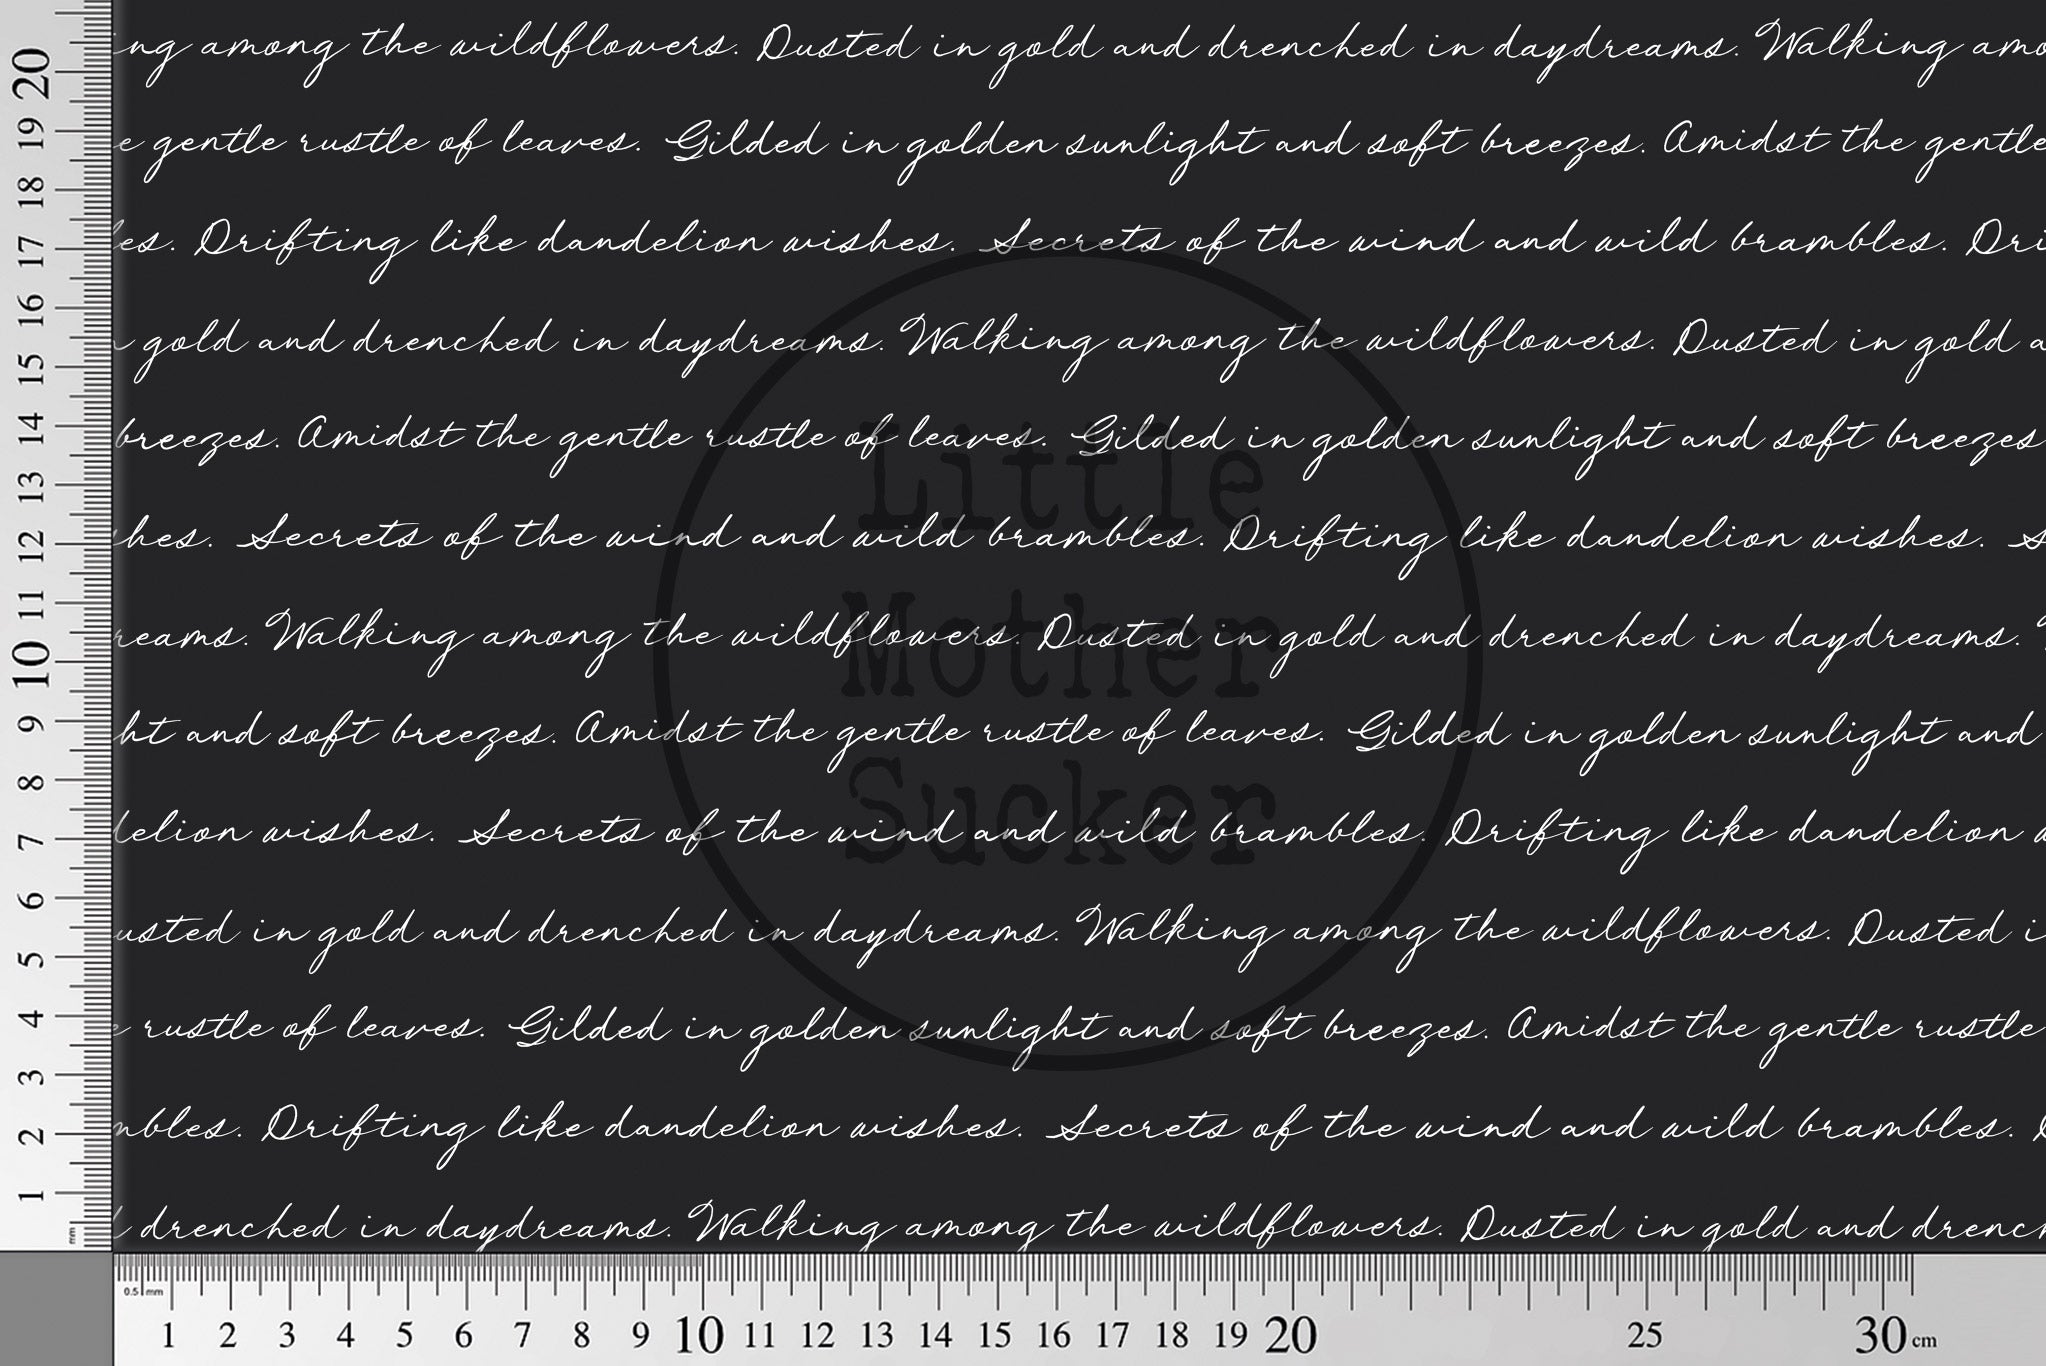 ng among the wildflowers. Dusted in gold and drenched in daydreams. Walking amo
e gentle rustle of leaves. Gilded in golden sunlight and soft breezes. Amidst the gentle
es. Drifting like dandelion wishes. Secrets of the wind and wild brambles. Dri
gold and drenched in daydreams. Walking among the wildflowers. Dusted in gold a
breezes. Amidst the gentle rustle of leaves. Gilded in golden sunlight and soft breezes
hes. Secrets of the wind and wild brambles. Drifting like dandelion wishes. S
reams. Walking among the wildflowers. Dusted in gold and drenched in daydreams.
ht and soft breezes. Amidst the gentle rustle of leaves. Gilded in golden sunlight and
delion wishes. Secrets of the wind and wild brambles. Drifting like dandelion
usted in gold and drenched in daydreams. Walking among the wildflowers. Dusted i
e rustle of leaves. Gilded in golden sunlight and soft breezes. Amidst the gentle rustle
mbles. Drifting like dandelion wishes. Secrets of the wind and wild brambles. D
d drenched in daydreams. Walking among the wildflowers. Dusted in gold and drench
Little
Mother
Sucker
20
19
18
17
16
15
14
13
12
11
10
9
8
7
6
5
4
3
2
1
mm
0.5 mm
1 2 3 4 5 6 7 8 9 10 11 12 13 14 15 16 17 18 19 20 25 30 cm